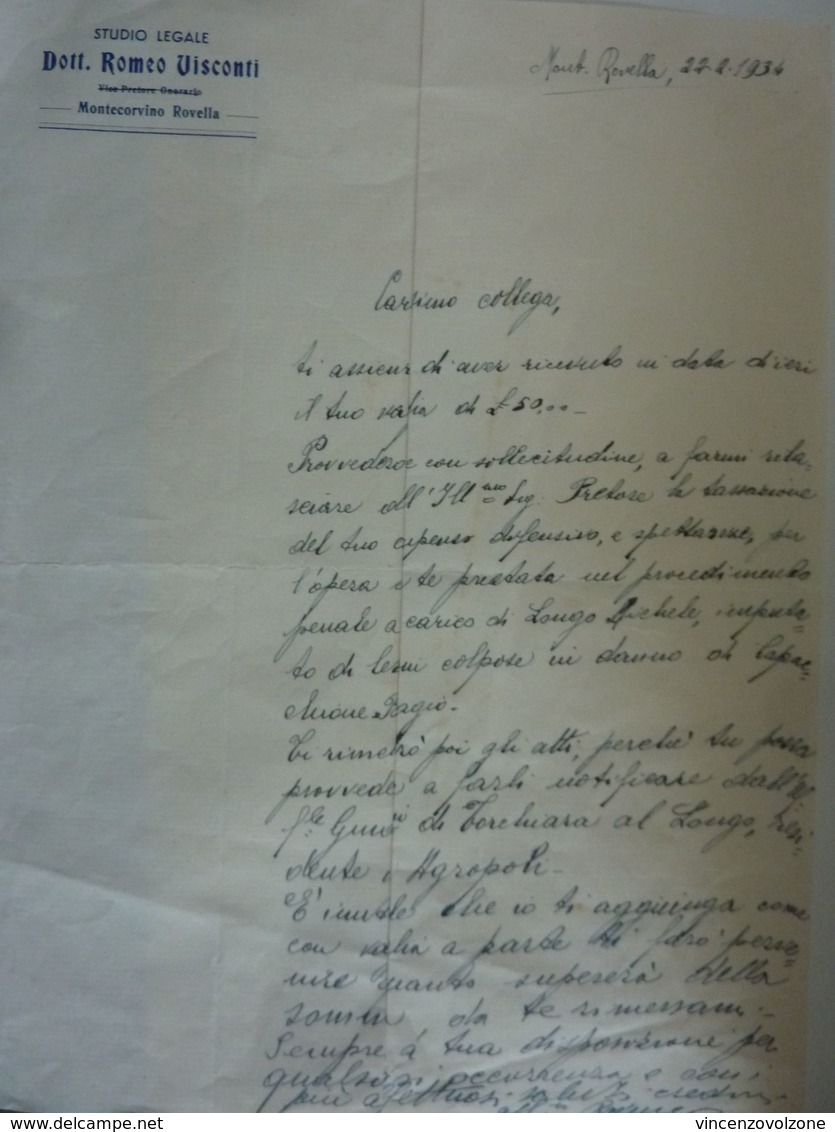 STUDIO LEGALE
Dott. Romeo Visconti
Vice Pretore Onorario
Montecorvino Rovella
Mont. Rovella, 22-2-1934
Carsimo collega,
ti assicur di aver ricevuto in data di ieri
il tuo vaglia di £ 50,00-
Provvederò con sollecitudine, a farmi rila=
sciare dall'Ill mo Sig. Pretore la tassazione
del tuo difensivo, e spettanze, per
l'opera da te prestata nel procedimento
penale a carico di Longo Michele, imputa=
to di lesioni colpose in danno di Capac=
chione Biagio-
Ti rimetrò poi gli atti, perchè tu possa
provvede a farli notificare dall'Uf
le Giud di Torchiara al Longo, resi=
dente i Agropoli-
E' inutile che io ti aggiunga come
con vaglia a parte ti farò perve=
nire quanto supererà della
somm da te rimessami-
Sempre a tua disposizione per
qualsiasi occorrenza e con i
più affettuosi saluti credimi
delcampe.net
vincenzovolzone